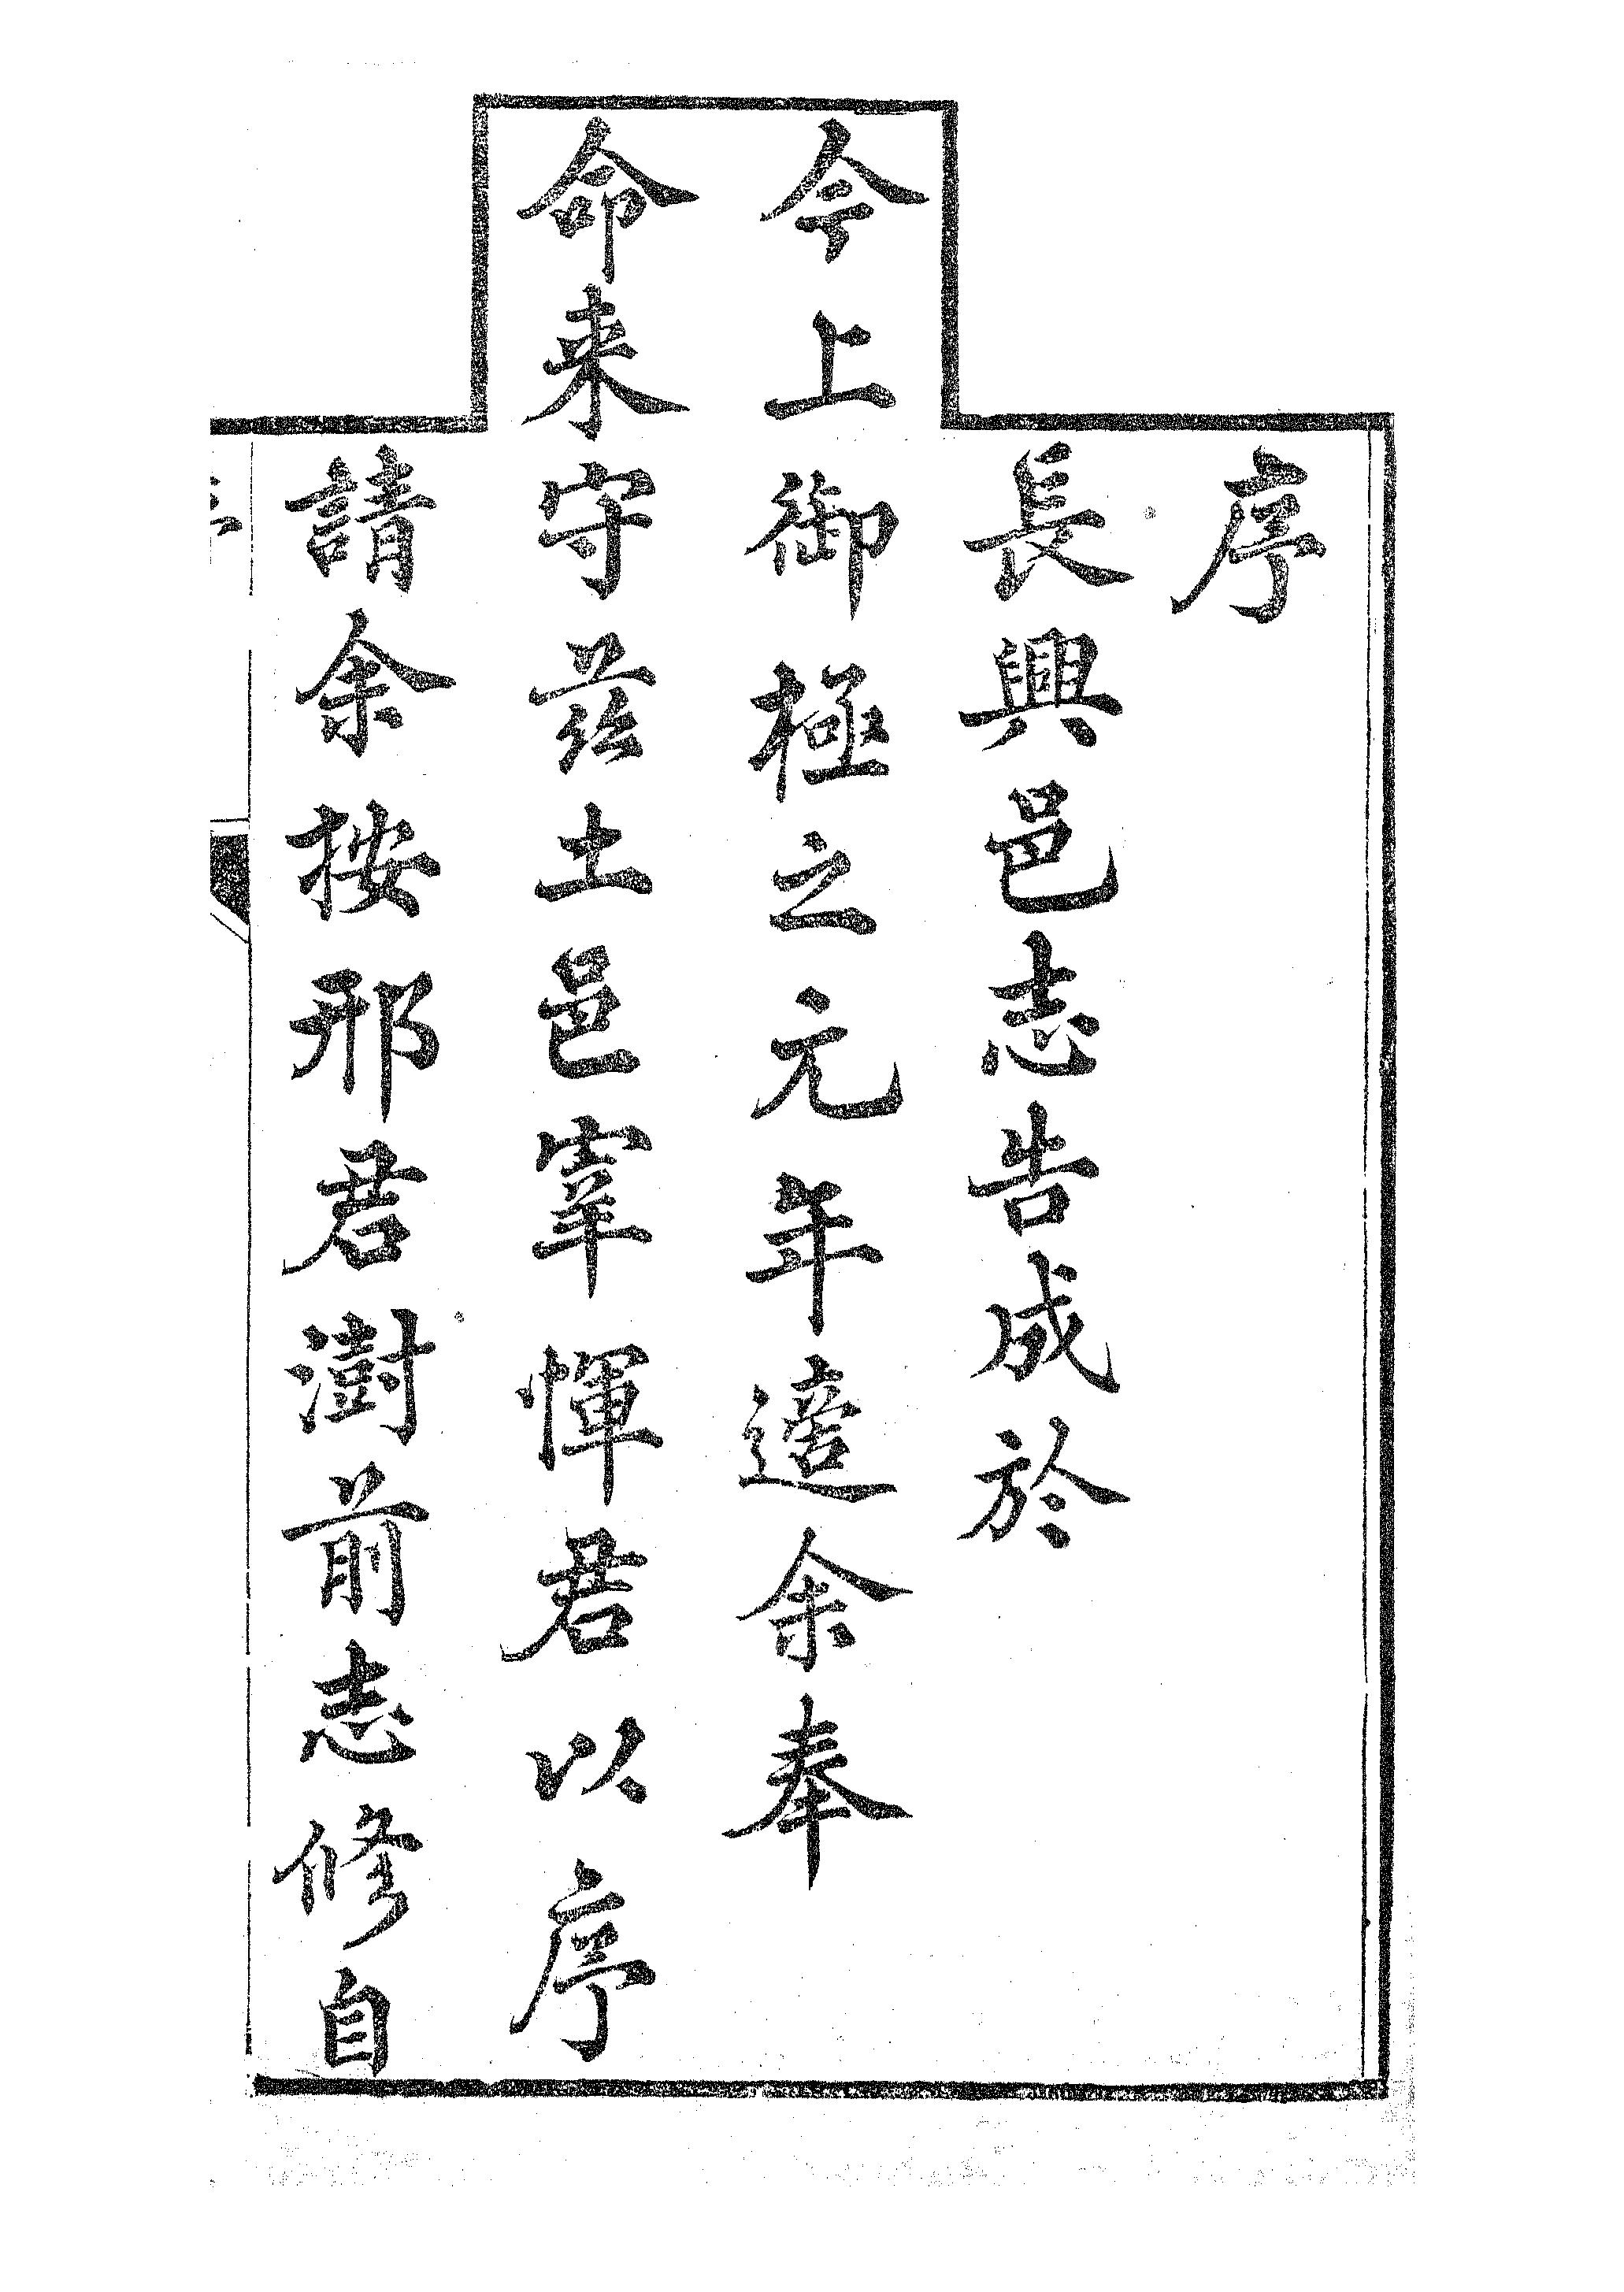 序
長興邑志告成於
今上御極之元年適余奉
命来守茲土邑宰惲君以序
請余按邢君澍前志修自